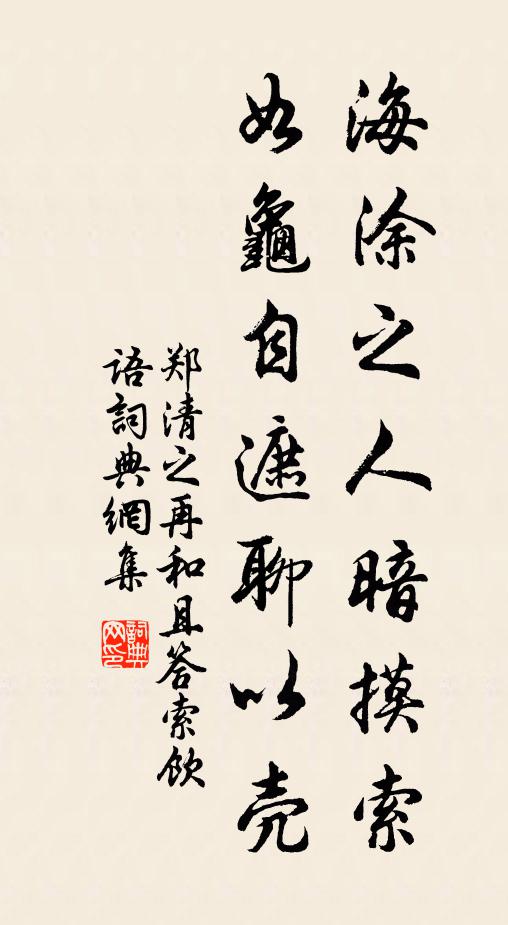 海涂之人暗摸索
如龜自遮聊以壳
郑清之再和且答索飲
語詞典網集
詞典网印